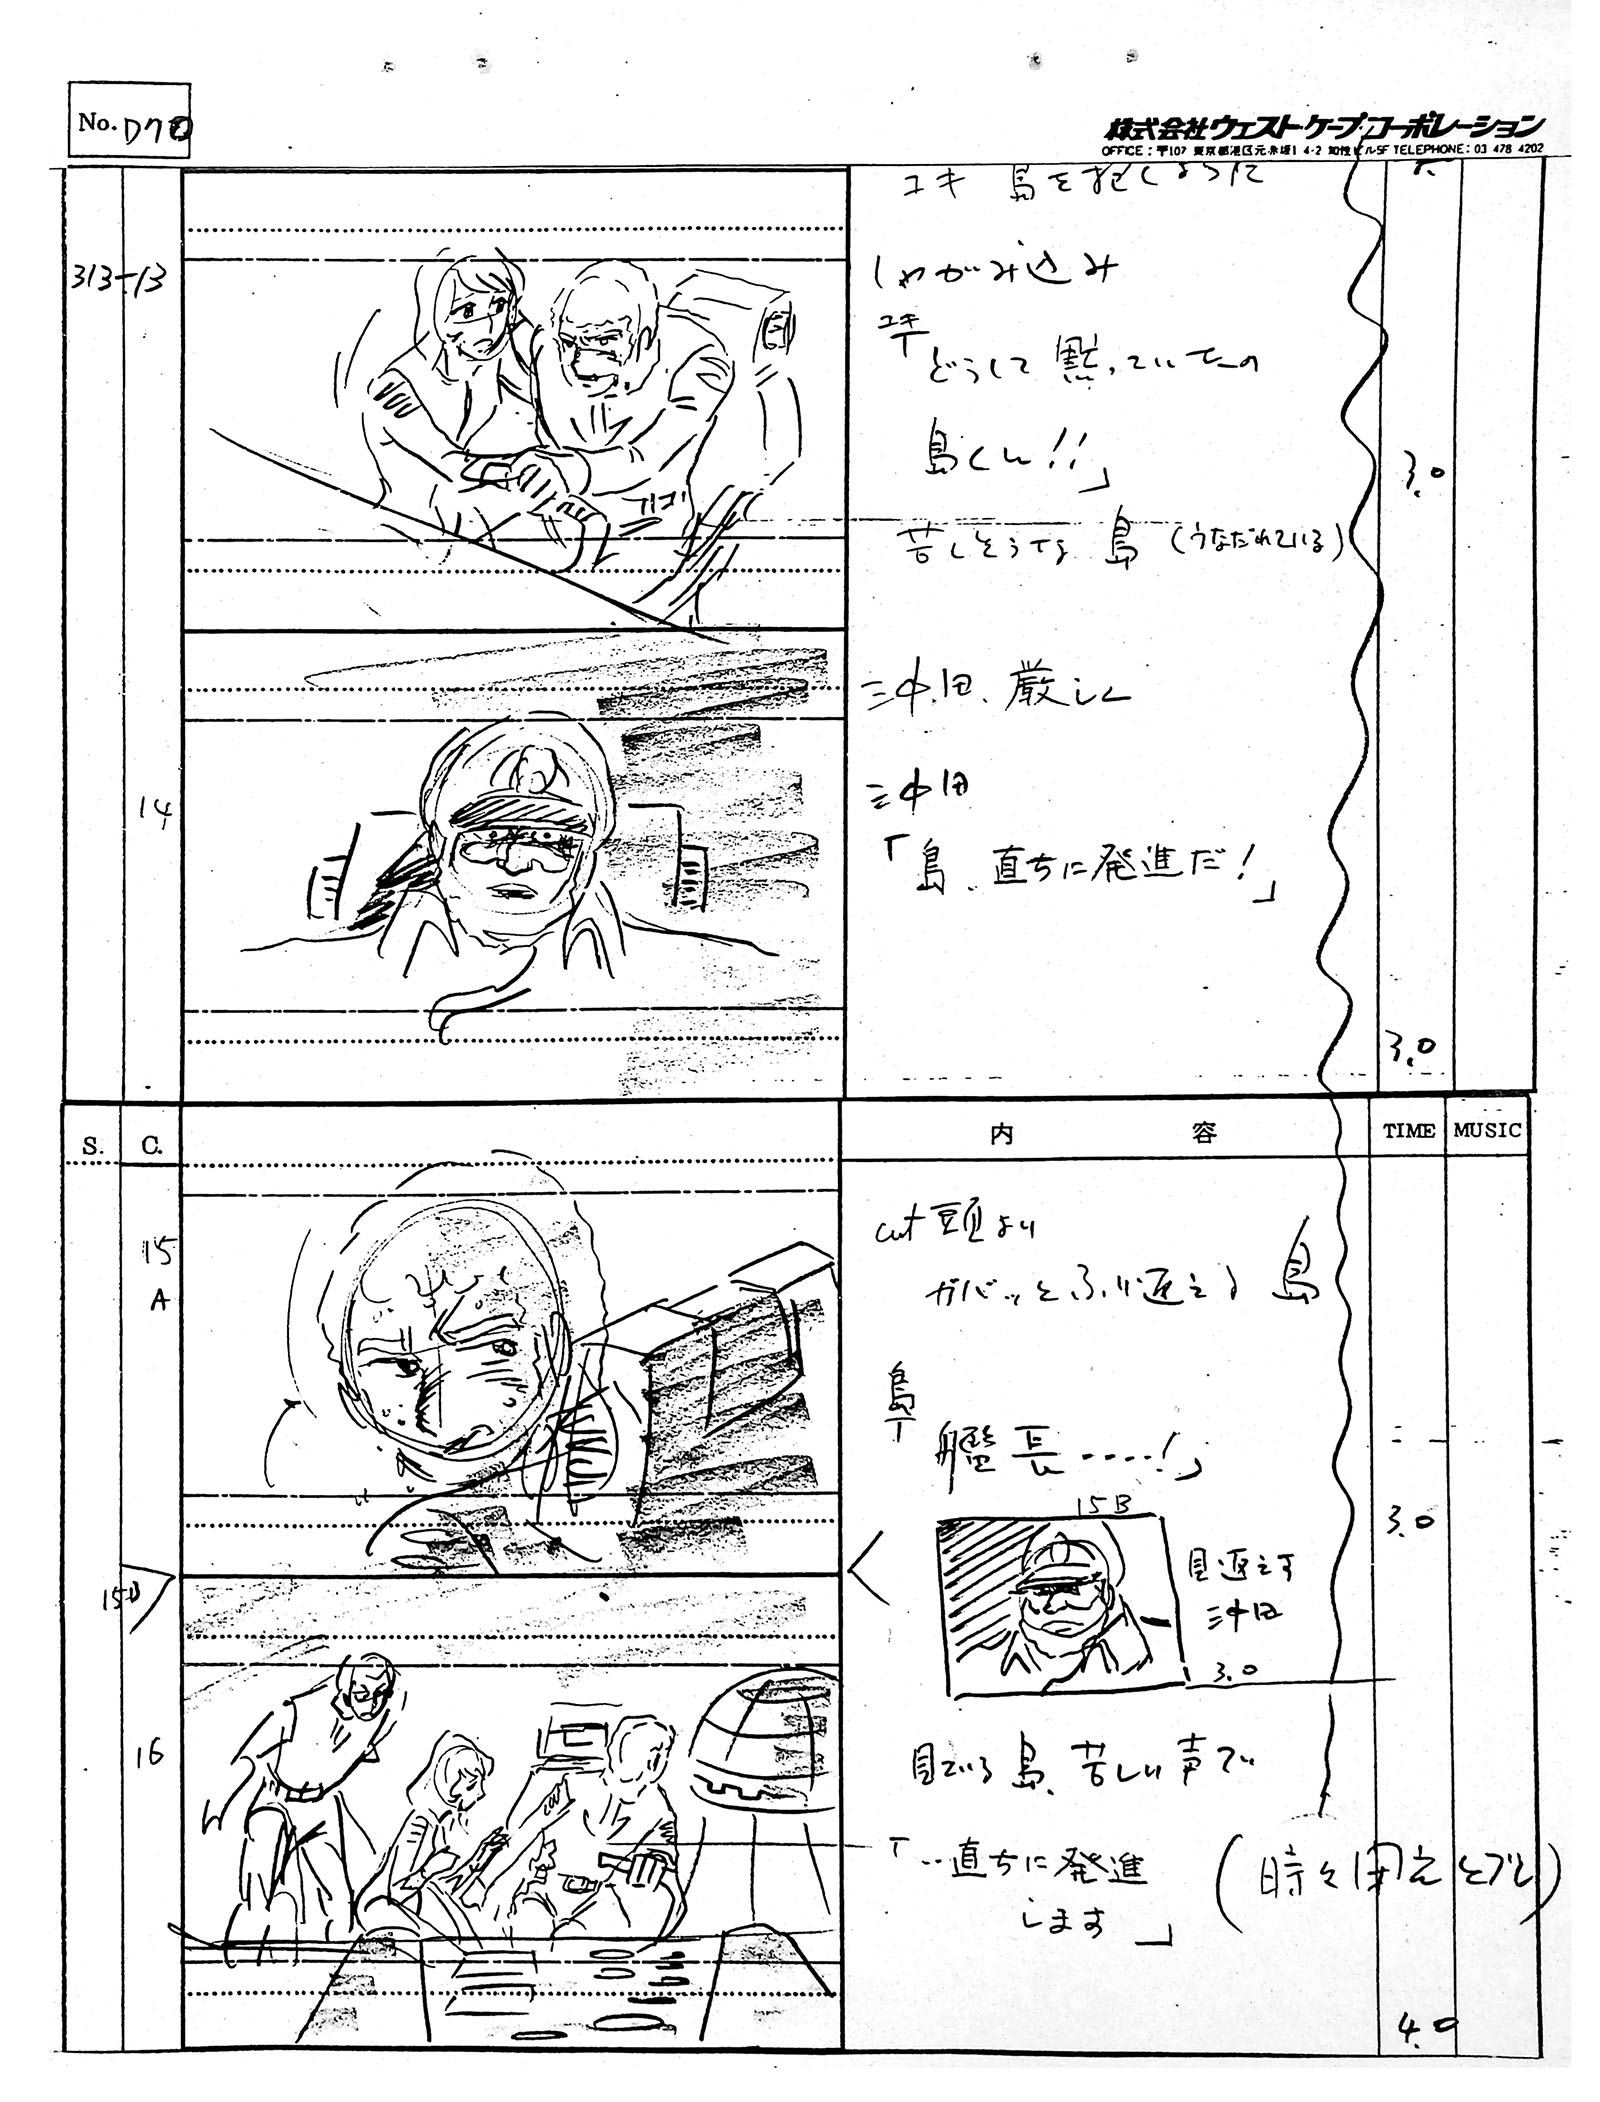 No. D70
株式会社ウェストケープ・コーポレーション
OFFICE：〒107 東京都港区元赤坂1 4-2 知性ビル5F TELEPHONE：03 478 4202
ユキ 島を抱くように
313-13
しゃがみ込み
ユキ
「どうして黙っていたの
島くん!!」
3.0
苦しそうな 島 (うなだれている)
沖田、厳しく
14
沖田
「島、直ちに発進だ!」
3.0
S. C. 内 容 TIME MUSIC
15
A
cut頭より
ガバッとふり返える 島
島
「艦長‥‥!」
15B
3.0
見返えす
沖田
3.0
15B
16
見ている 島、苦しい声で
「‥直ちに発進
します」
(時々 とぎれ)
4.0